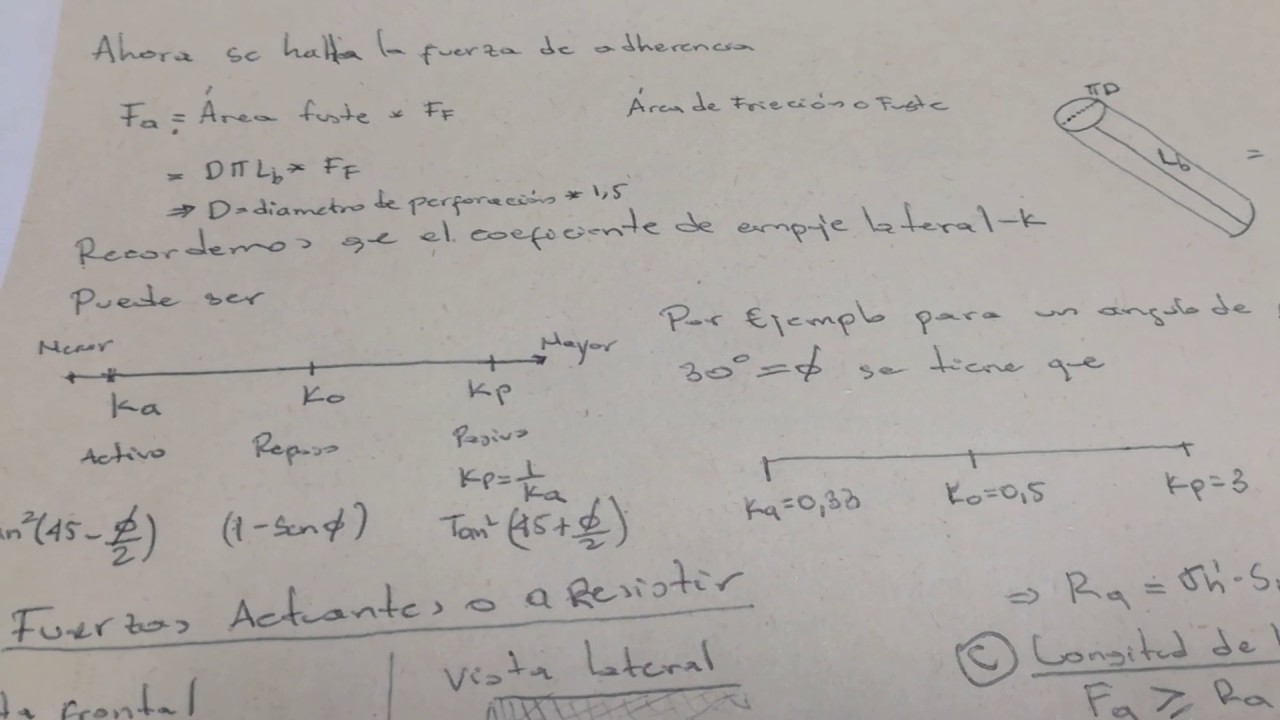 Ahora se halla la fuerza de adherencia
Fa = Área fuste * FF
= DπLb * FF
⇒ D = diametro de perforación * 1,5
Área de Fricción o Fuste
πD
Lb
=
Recordemos qe el coeficiente de empuje lateral - K
Puede ser
Menor
Mayor
Ka
Ko
Kp
Activo
Reposo
Pasivo
Kp = 1/Ka
an²(45 - ϕ/2)
(1 - Senϕ)
Tan²(45 + ϕ/2)
Por Ejemplo para un angulo de
30° = ϕ se tiene que
Ka = 0,33
Ko = 0,5
Kp = 3
Fuerzas Actuantes o a Resistir
ta frontal
Vista lateral
⇒ Ra = σh' · S
C Longitud de
Fa ≥ Ra